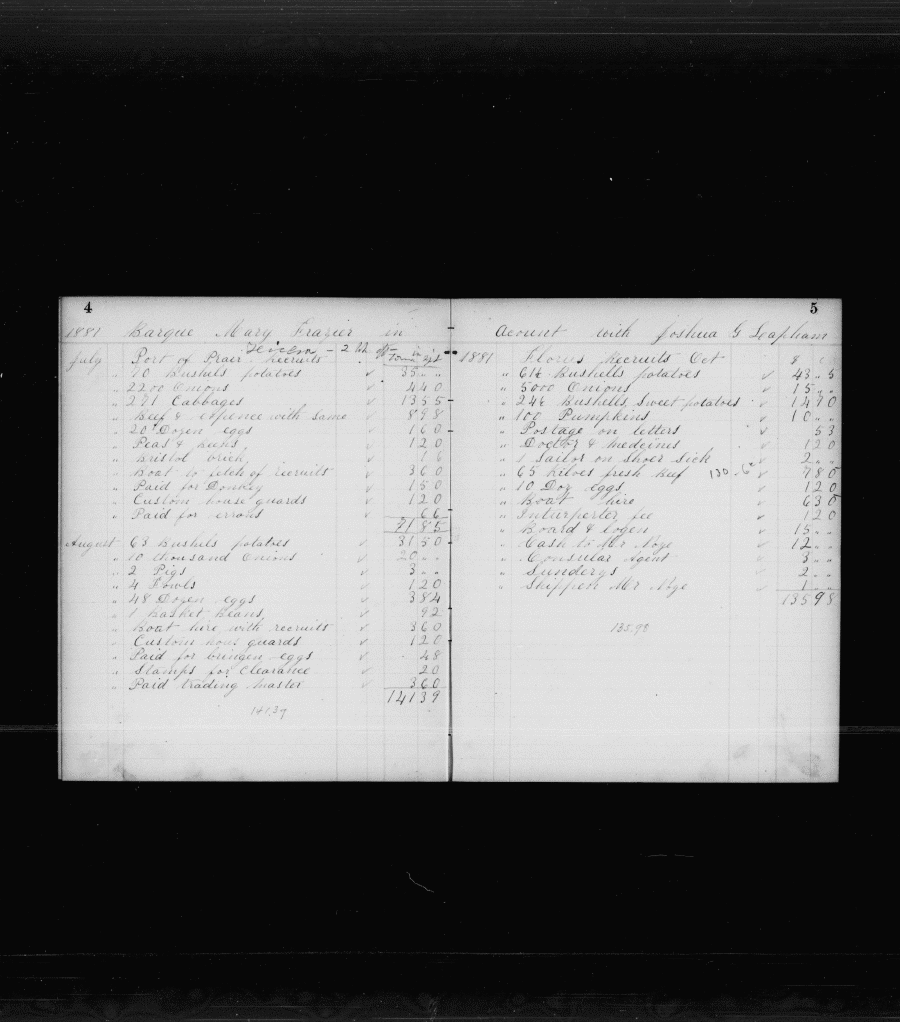 4
1881 Barque Mary Frazier in
July Port of Prair recruits
" 70 Bushels potatoes 35 " "
" 2200 Onions 4 40
" 271 Cabbages 13 55
" Beef & expence with same 8 98
" 20 Dozen eggs 1 60
" Peas & 1 20
" Bristol brick 16
" Boat to fetch of recruits 3 60
" Paid for Donkey 1 50
" Custom house guards 1 20
" Paid for errons 66
71 85
August 63 Bushels potatoes 31 50
" 10 thousand Onions 20 " "
" 2 Pigs 3 " "
" 4 Fowls 1 20
" 48 Dozen eggs 3 84
" 1 Basket Beans 92
" Boat hire with recruits 3 60
" Custom hous guards 1 20
" Paid for bringen eggs 48
" Stamps for Clearance 20
" Paid trading master 3 60
141 39
5
Acount with Joshua G Leapham
1881 Flores Recruits Oct
" Bushells potatoes 43 " 5
" 5000 Onions 15 " "
" Bushells Sweet potatoes 14 70
" 100 Pumpkins 10 " "
" Postage on letters 53
" Doctor & medecines 1 20
" 1 Sailor on Shoer Sick 2 " "
" 65 Kiloes fresh Beef 7 80
" 10 Doz eggs 1 20
" Boat hire 6 30
" Inturperter fee 1 20
" Board & logen 15 " "
" Cash to Mr Nye 12 " "
" Consular Agent 3 " "
" Sunderys 2 " "
" Skippen Mr Nye 1 " "
135 98
135.98